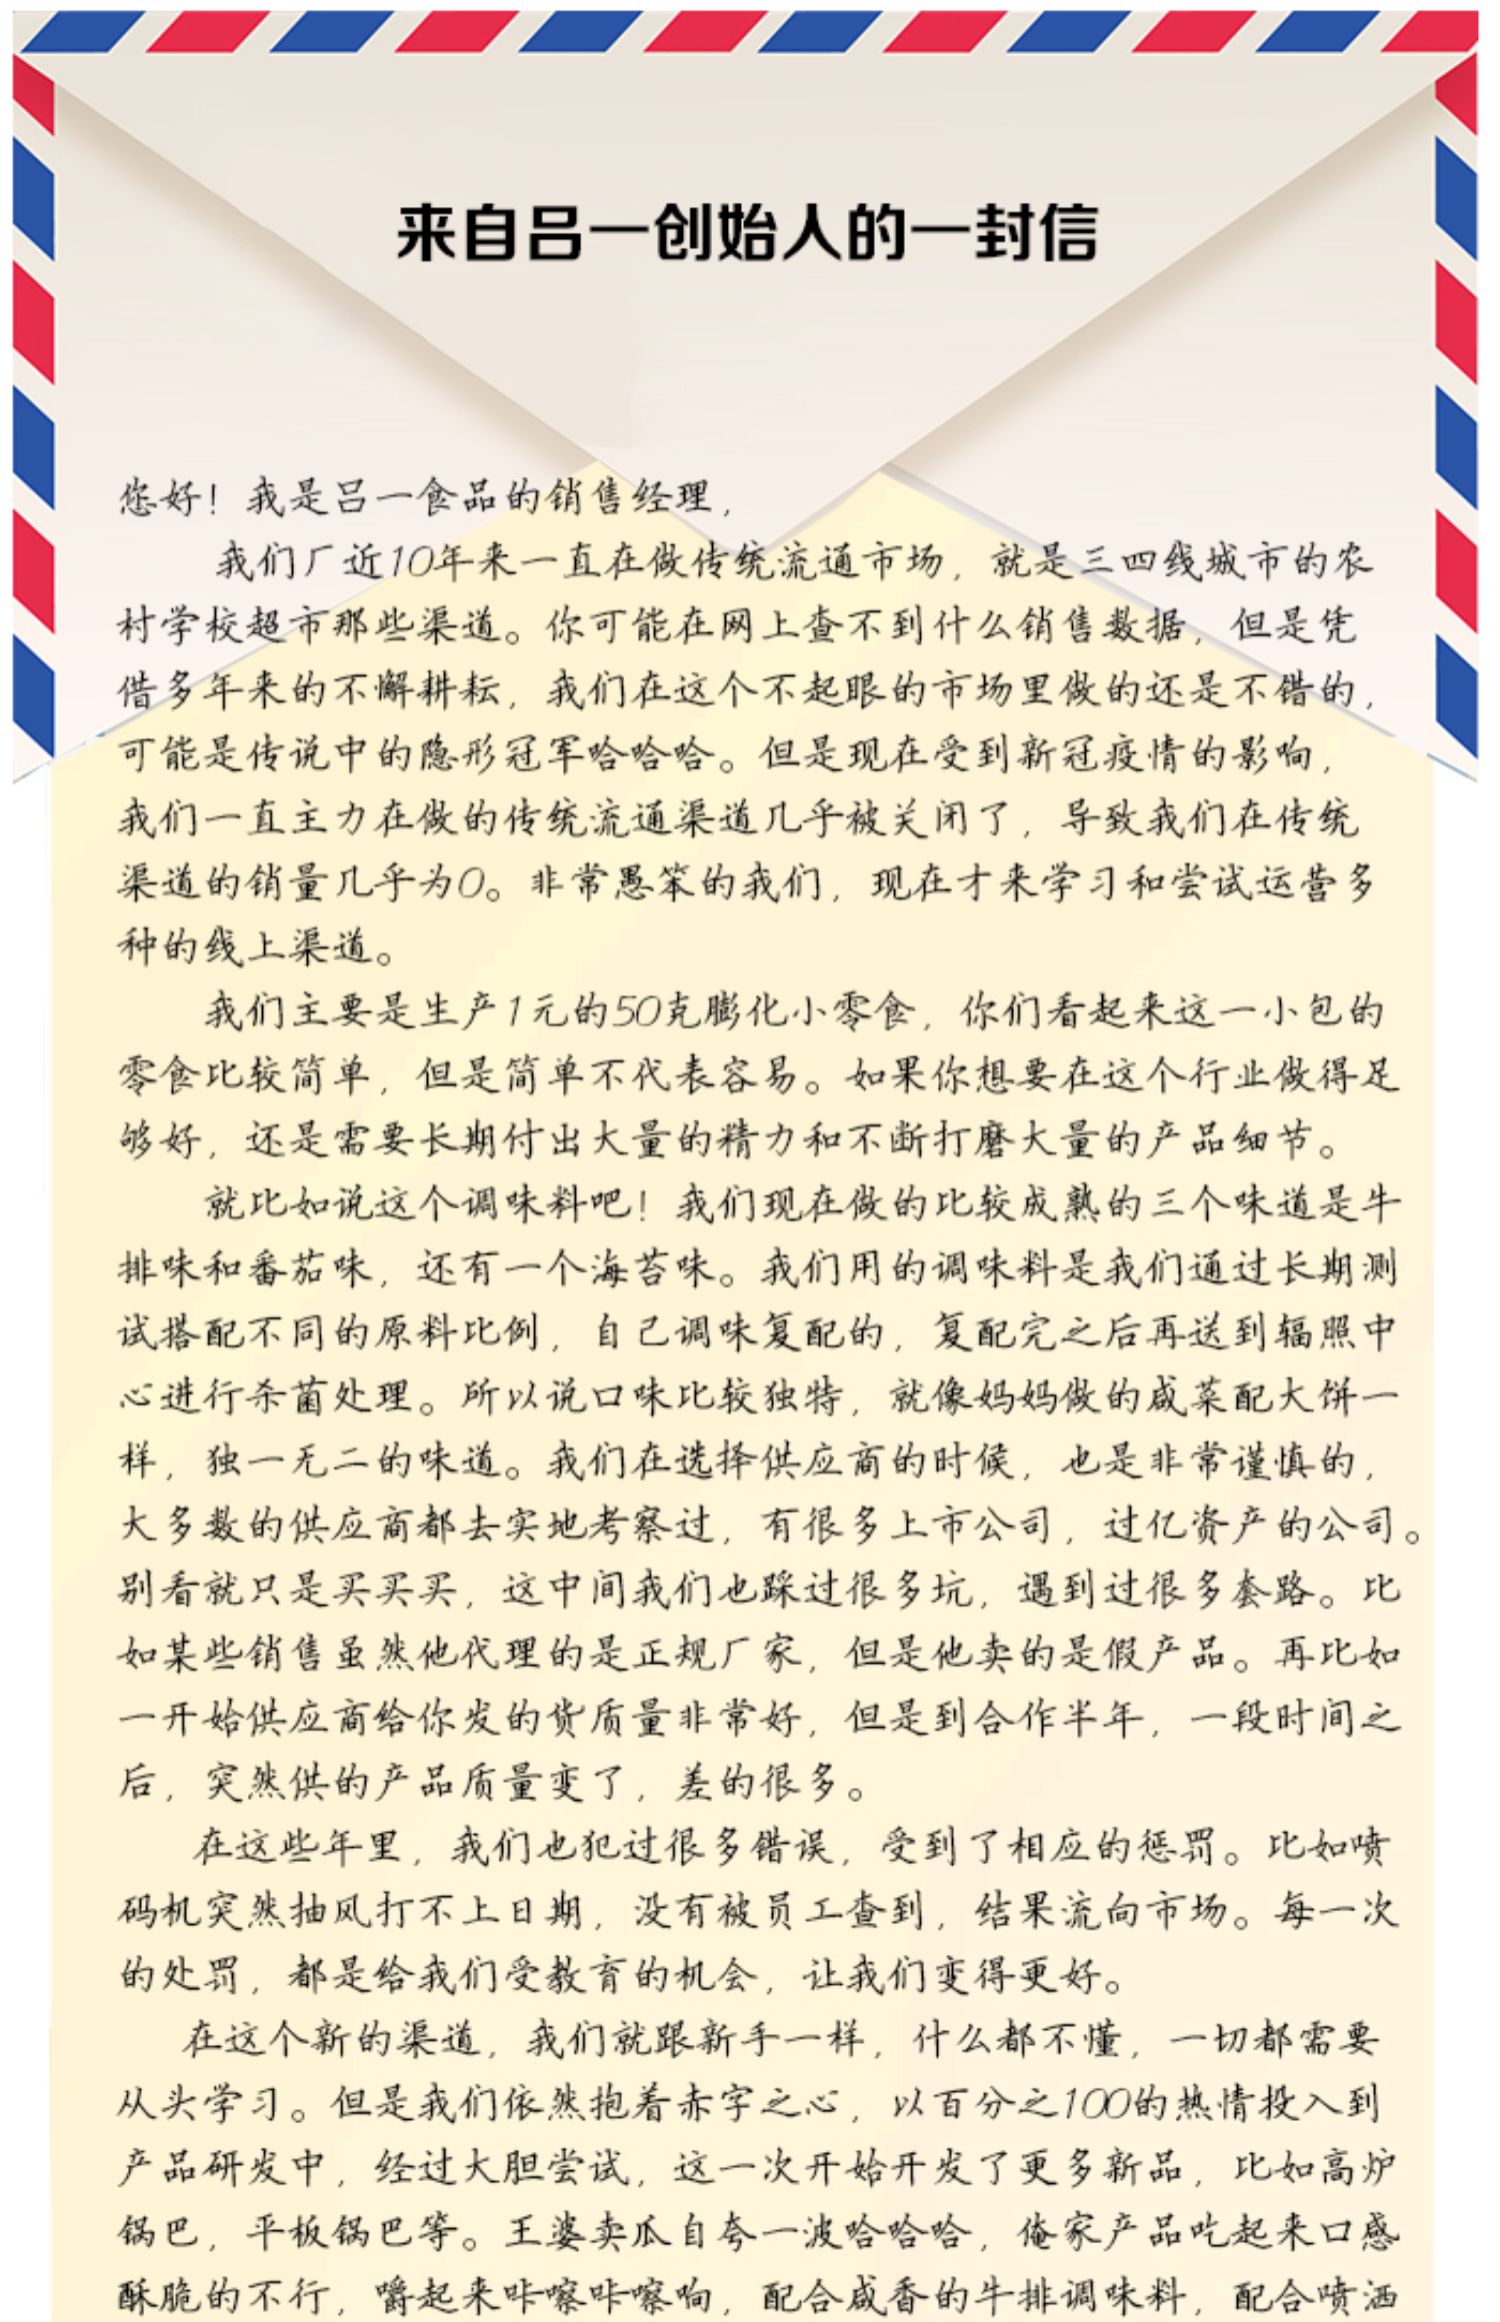 来自吕一创始人的一封信
您好！我是吕一食品的销售经理，
我们厂近10年来一直在做传统流通市场，就是三四线城市的农
村学校超市那些渠道。你可能在网上查不到什么销售数据，但是凭
借多年来的不懈耕耘，我们在这个不起眼的市场里做的还是不错的，
可能是传说中的隐形冠军哈哈哈。但是现在受到新冠疫情的影响，
我们一直主力在做的传统流通渠道几乎被关闭了，导致我们在传统
渠道的销量几乎为0。非常愚笨的我们，现在才来学习和尝试运营多
种的线上渠道。
我们主要是生产1元的50克膨化小零食，你们看起来这一小包的
零食比较简单，但是简单不代表容易。如果你想要在这个行业做得足
够好，还是需要长期付出大量的精力和不断打磨大量的产品细节。
就比如说这个调味料吧！我们现在做的比较成熟的三个味道是牛
排味和番茄味，还有一个海苔味。我们用的调味料是我们通过长期测
试搭配不同的原料比例，自己调味复配的，复配完之后再送到辐照中
心进行杀菌处理。所以说口味比较独特，就像妈妈做的咸菜配大饼一
样，独一无二的味道。我们在选择供应商的时候，也是非常谨慎的，
大多数的供应商都去实地考察过，有很多上市公司，过亿资产的公司。
别看就只是买买买，这中间我们也踩过很多坑，遇到过很多套路。比
如某些销售虽然他代理的是正规厂家，但是他卖的是假产品。再比如
一开始供应商给你发的货质量非常好，但是到合作半年，一段时间之
后，突然供的产品质量变了，差的很多。
在这些年里，我们也犯过很多错误，受到了相应的惩罚。比如喷
码机突然抽风打不上日期，没有被员工查到，结果流向市场。每一次
的处罚，都是给我们受教育的机会，让我们变得更好。
在这个新的渠道，我们就跟新手一样，什么都不懂，一切都需要
从头学习。但是我们依然抱着赤字之心，以百分之100的热情投入到
产品研发中，经过大胆尝试，这一次开始开发了更多新品，比如高炉
锅巴，平板锅巴等。王婆卖瓜自夸一波哈哈哈，俺家产品吃起来口感
酥脆的不行，嚼起来咔嚓咔嚓响，配合咸香的牛排调味料，配合喷洒